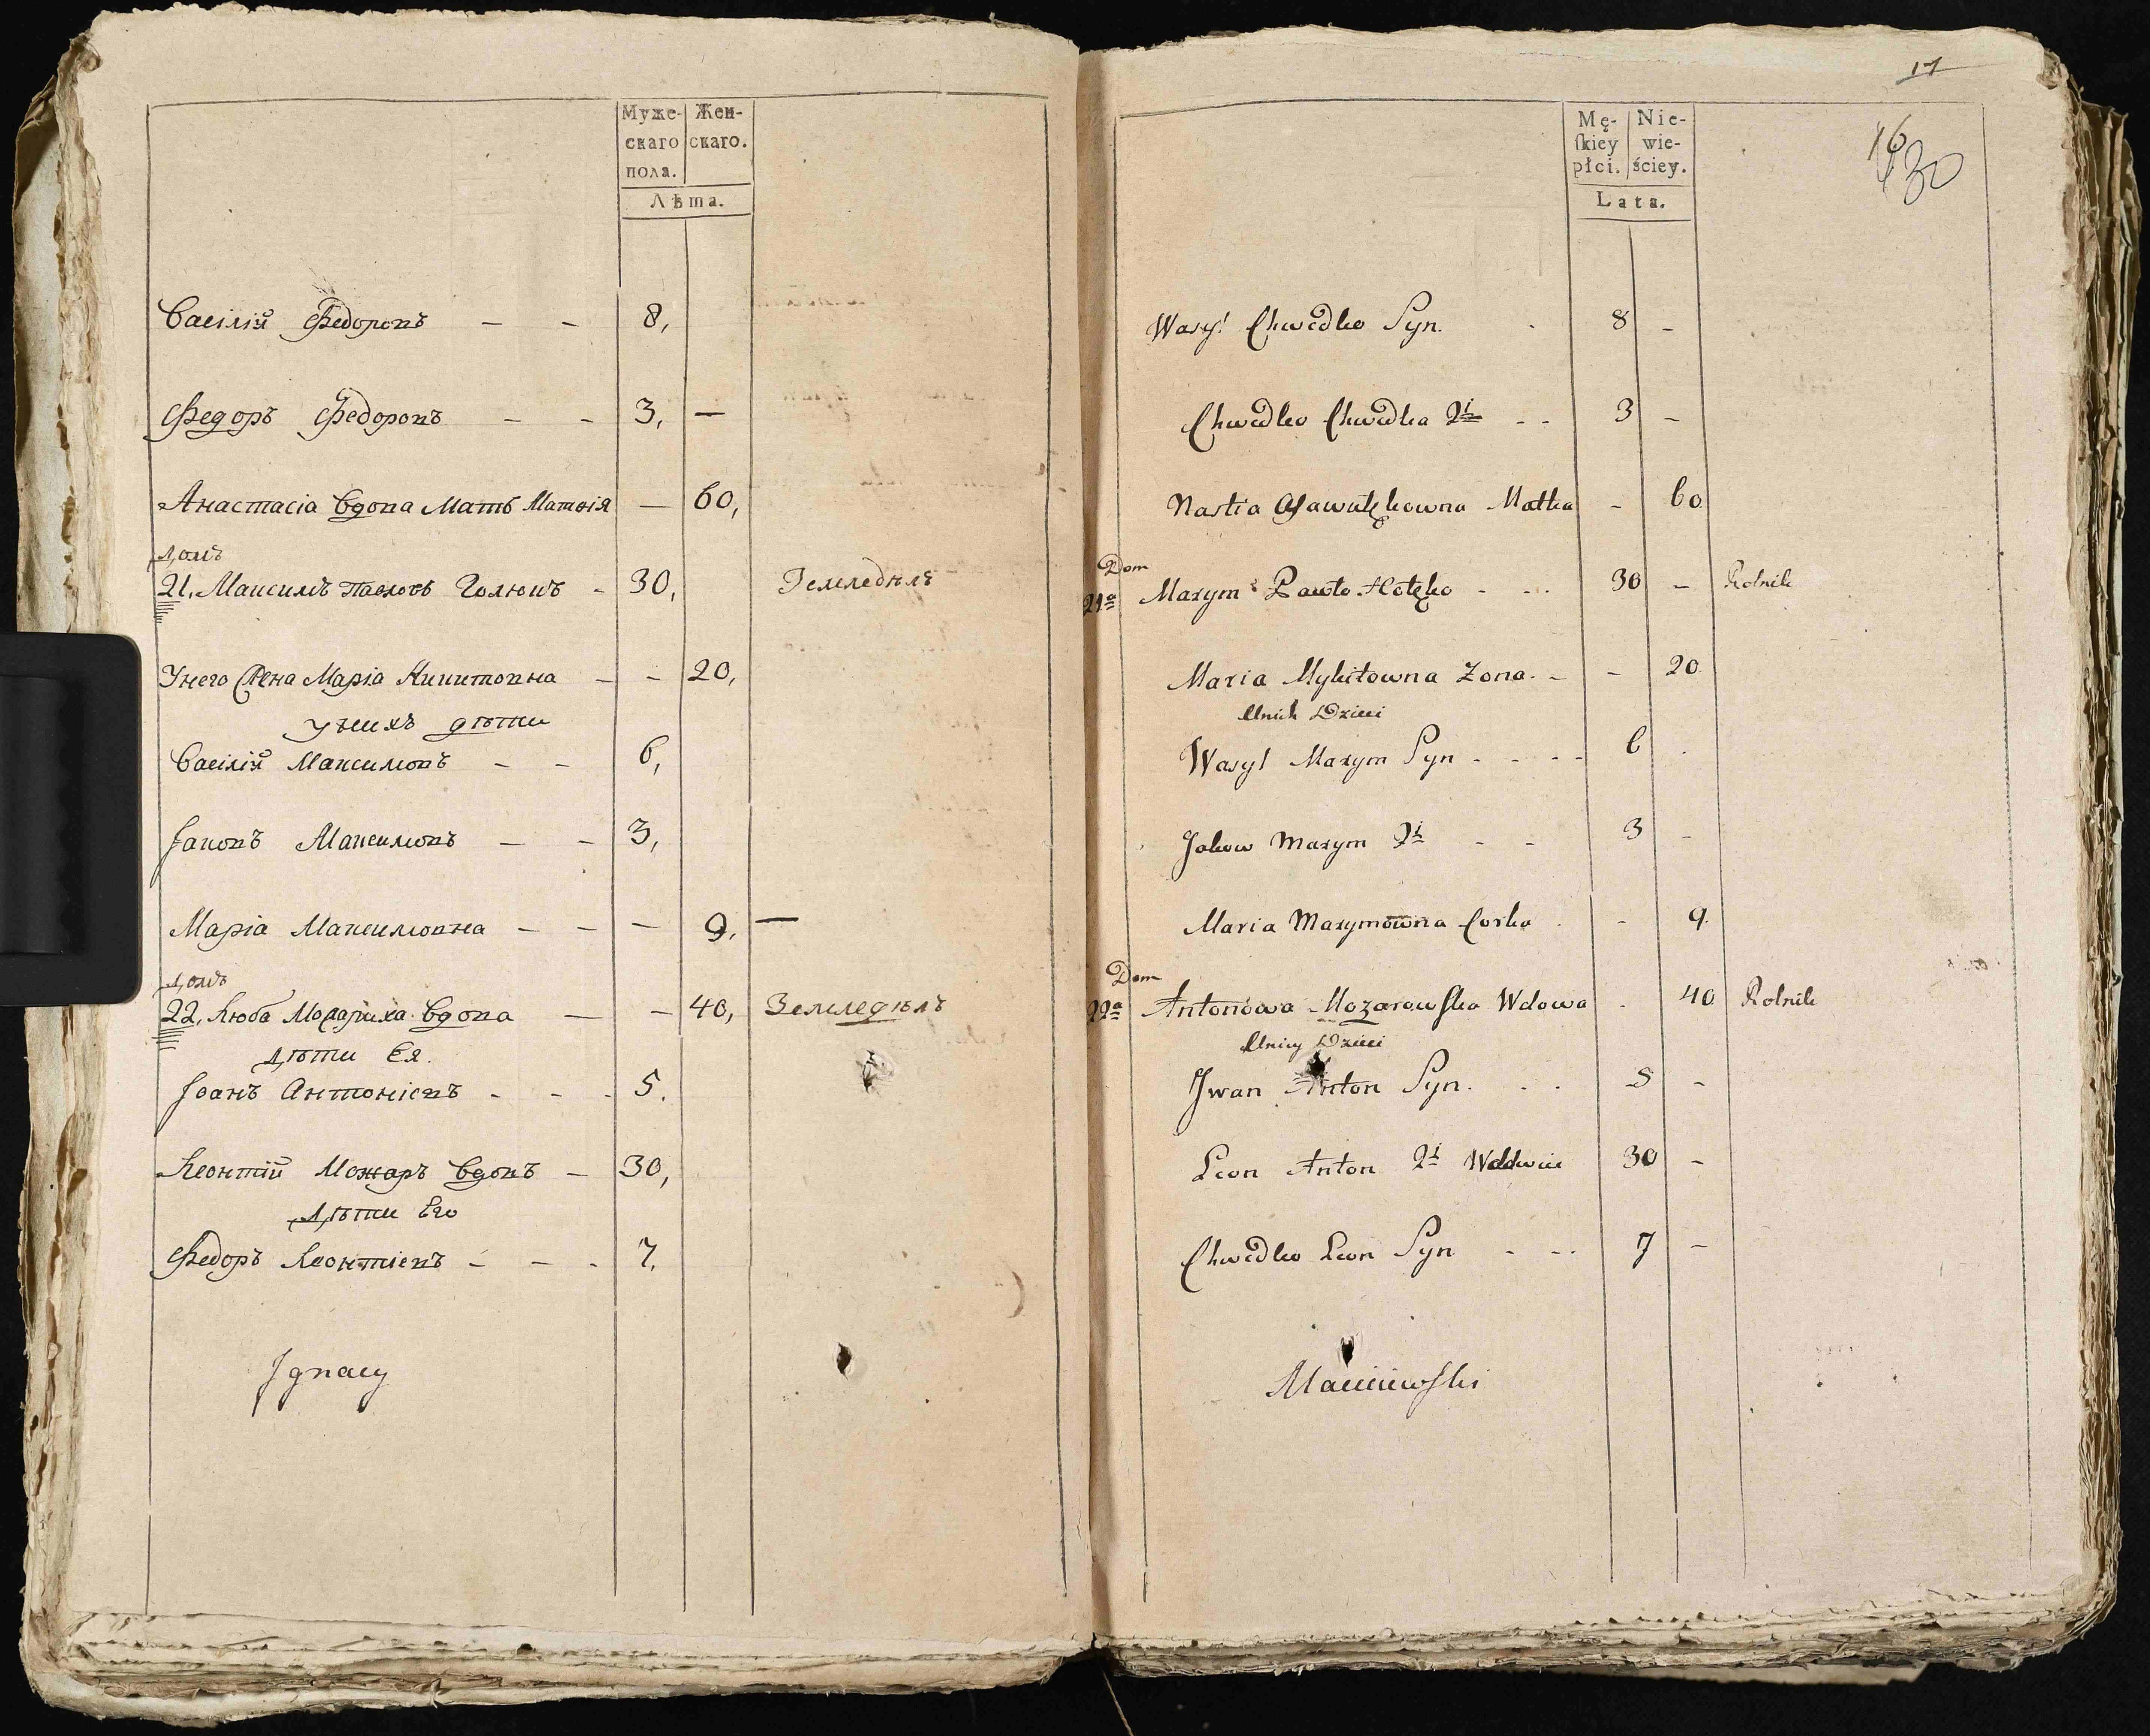 Муже-
скаго
пола.
Жен-
скаго.
Лѣта.
Василій Федоровъ — — 8,
Федоръ Федоровъ — — 3, —
Анастасія Вдова Мать Матвія — 60,
Домъ
21, Максимъ Павловъ - 30, Земледѣлъ
Унего Жена Марія Никитовна — — 20,
Унихъ дѣти
Василій Максимовъ — — 6,
Іаковъ Максимовъ — — 3,
Марія Максимовна — — — 9, —
Домъ
22, Люба Вдова — — 40, Земледѣлъ
Дѣти Ея.
Іванъ Антоніевъ - - - 5.
Леонтій Можаръ Вдовъ — 30,
Дѣти Его
Федоръ Леонтіевъ — — - 7.
Ignacy
17
16
430
Mę-
ſkiey
płci.
Nie-
wie-
ściey.
Lata.
Wasyl Chwedko Syn. 8 -
Chwedko Chwedka 2i - - 3 -
Nastia Matka - 60
Dom
21o Maxym Pawło - - 30 - Rolnik
Maria Mykitowna Zona. - - 20
Unich Dzieci
Wasyl Maxym Syn - - - - 6
Jakow Maxym 2i - - 3 -
Maria Maxymowna Corka - 9.
Dom
22o Antonowa Mozarowſka Wdowa 40 Rolnik
Uniey Dzieci
Jwan Anton Syn. 5 -
Leon Anton 2i Wdowiec 30 -
Chwedko Leon Syn - - 7 -